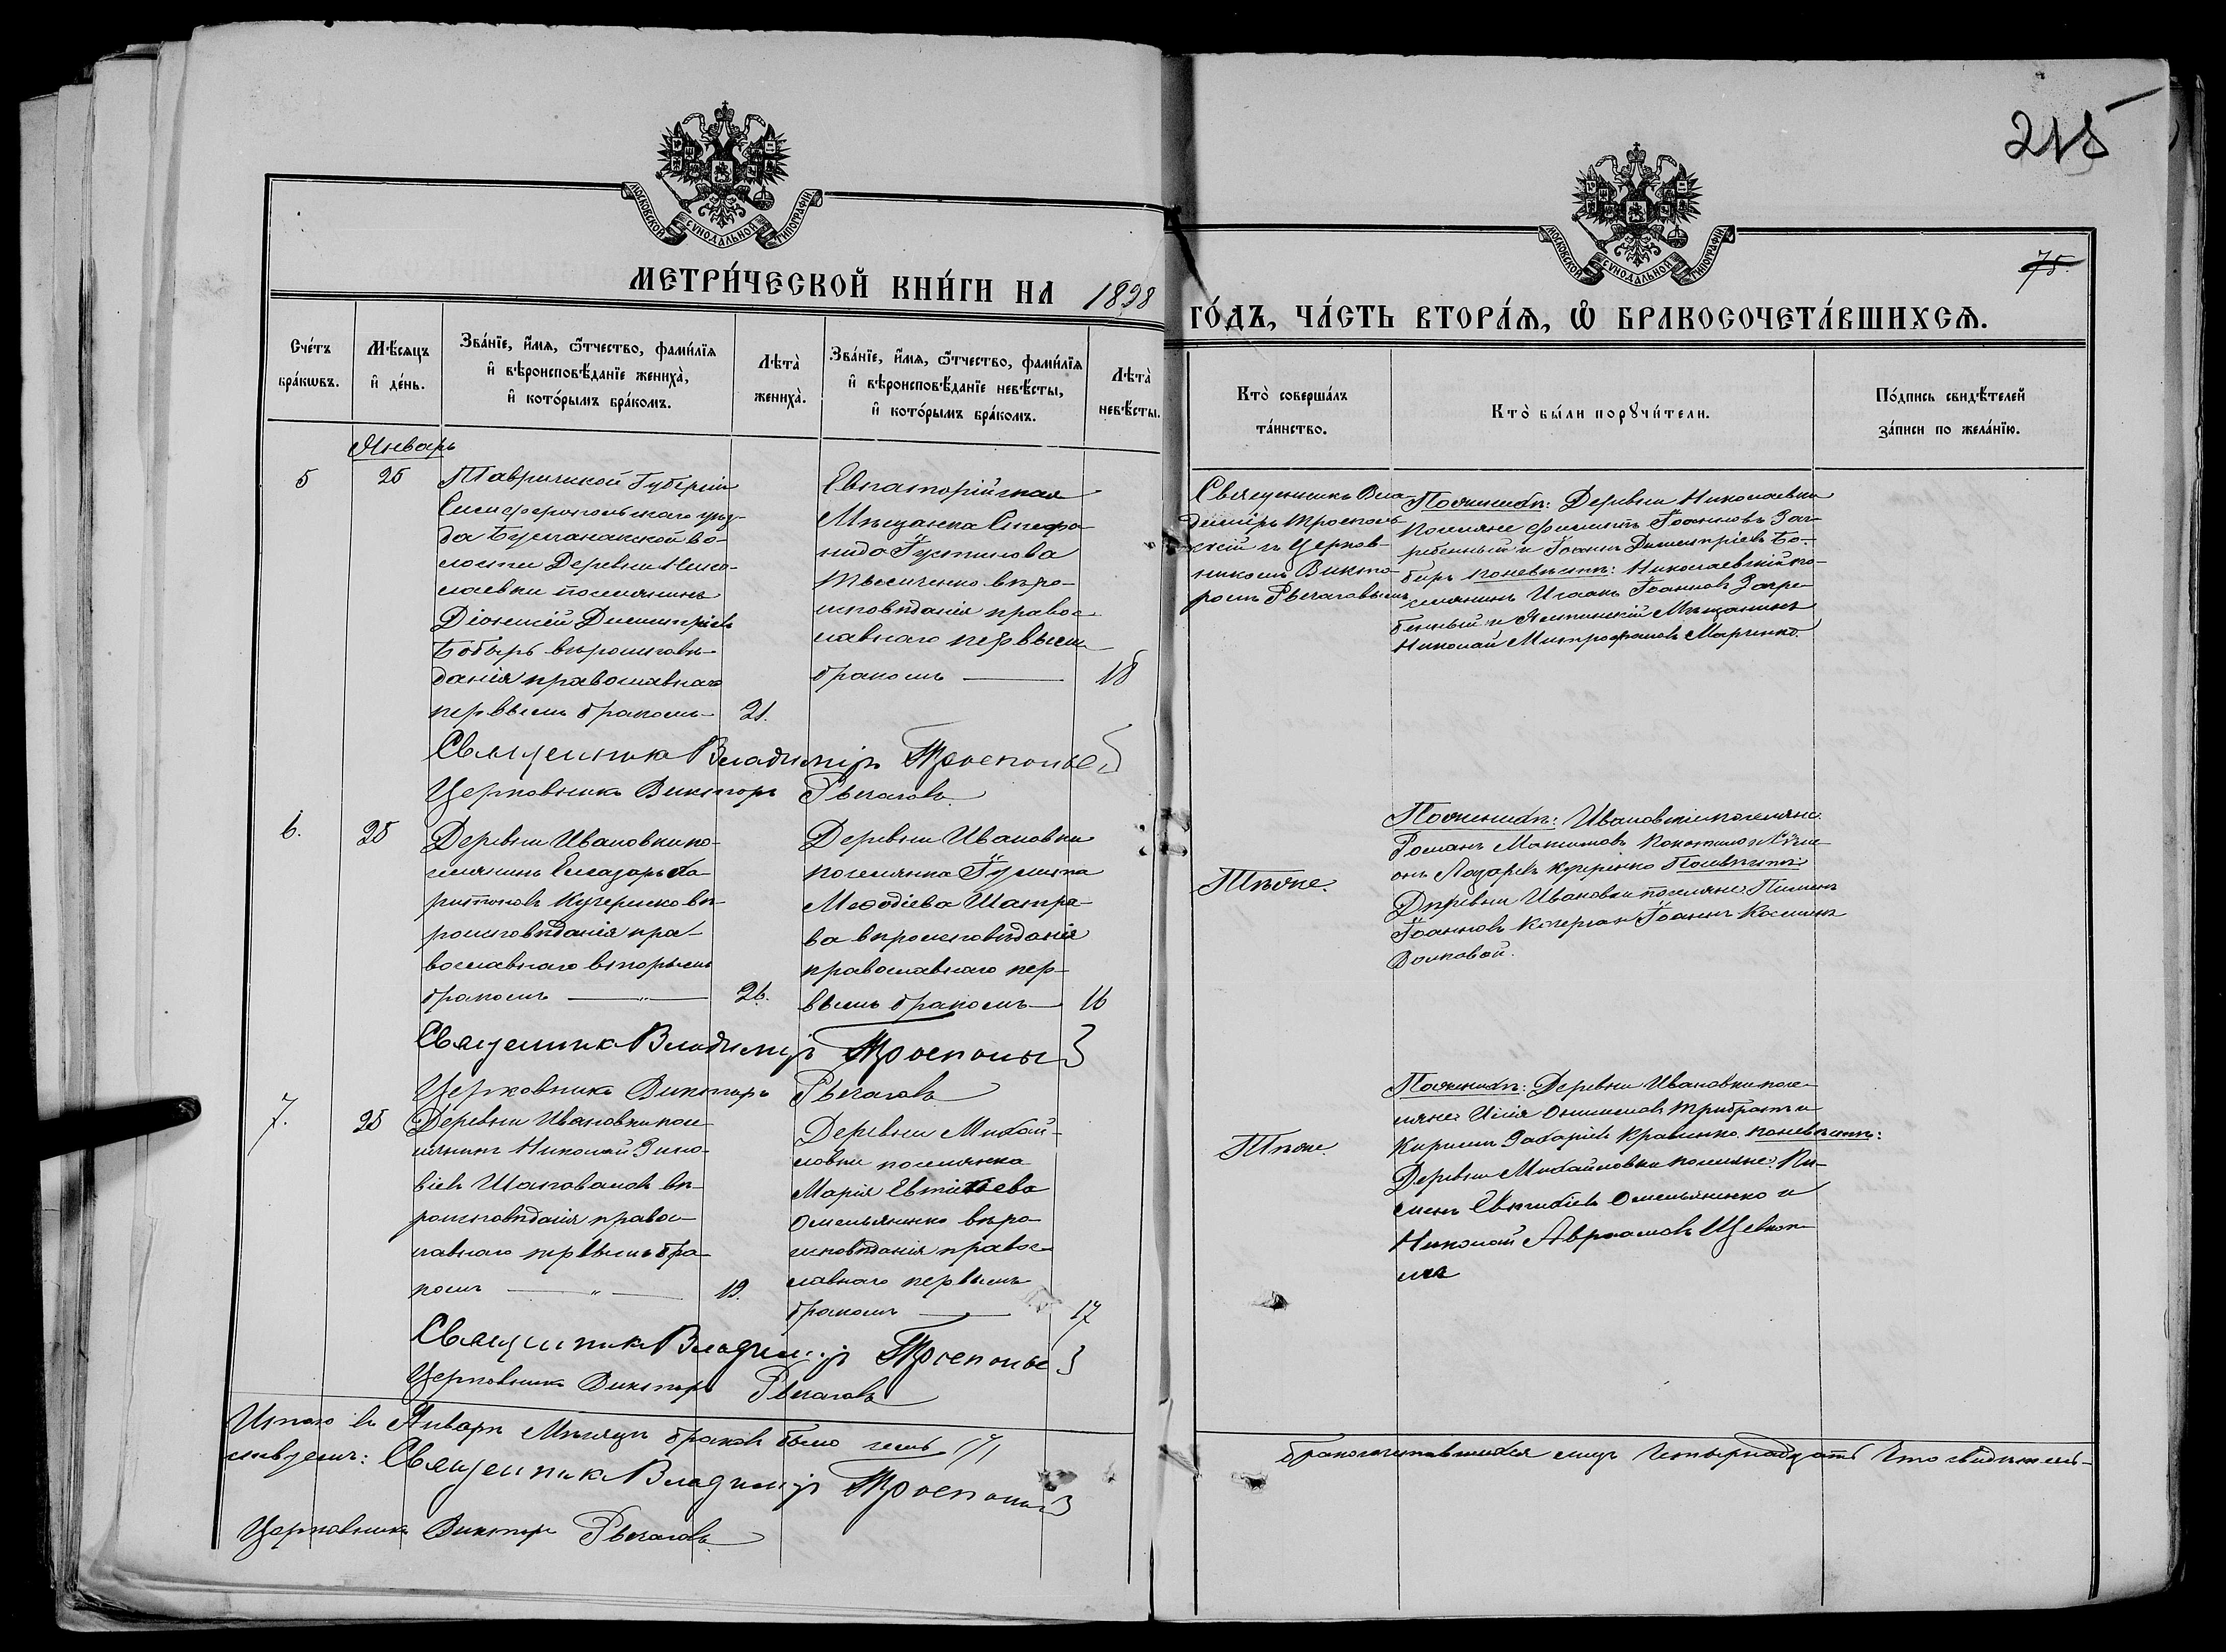 215
75.
МОСКОВСКОЙ СѴНОДАЛЬНОЙ ТИПОГРАФІИ
МЕТРИ́ЧЕСКОЙ КНИ́ГИ НА 1898
МОСКОВСКОЙ СѴНОДАЛЬНОЙ ТИПОГРАФІИ
ГО́ДЪ, ЧА́СТЬ ВТОРА́Я, Ѽ БРАКОСОЧЕТА́ВШИХСЯ.
Сче́тъ
бра́кѡвъ.
Мѣ́сяцъ
и҆ де́нь.
Зва́нїе, и҆́мя, ѻ҆́тчество, фами́лїя
и҆ вѣроисповѣ́данїе жениха̀,
и҆ кото́рымъ бра́комъ.
Лѣта̀
жениха̀.
Зва́нїе, и҆́мя, ѻ҆́тчество, фами́лїя
и҆ вѣроисповѣ́данїе невѣ́сты,
и҆ кото́рымъ бра́комъ.
Лѣта̀
невѣ́сты.
Кто̀ соверша́лъ
та́инство.
Кто̀ бы́ли порꙋчи́тели.
По́дпись свидѣ́телей
за́писи по жела́нїю.
Январь
5
25
Таврической Губерніи
Симферопольскаго уѣз-
да Булганакской во-
лости Деревни Нико-
лаевки поселянинъ
Діонисій Димитріевъ
Бобырь вѣроисповѣ-
данія православнаго
первымъ бракомъ
21.
Евпаторійская
Мѣщанка Стефа-
нида Іустинова
вѣро-
исповѣданія правос-
лавнаго первымъ
бракомъ
18
Священникъ Вла-
диміръ Троеполь-
скій съ Церков-
никомъ Викто-
ромъ Рычаговымъ
По женихѣ: Деревни Николаевки
поселяне Филиппъ Іоанновъ Заг-
ребенный и Іоаннъ Димитріевъ Бо-
бырь по невѣстѣ: Николаевскій по-
селянинъ Исаакъ Іоанновъ Загре-
бенный и Ялтинскій Мѣщанинъ
Николай Митрофановъ Марченко.
Священникъ Владиміръ Троепольс
Церковникъ Викторъ Рычаговъ
6.
25
Деревни Ивановки по-
селянинъ Елеазаръ Ха-
ритоновъ Кучеренко вѣ-
роисповѣданія пра-
вославнаго вторымъ
бракомъ
26.
Деревни Ивановки
поселянка Іулитта
Меѳодіева Шатра-
ва вѣроисповѣданія
православнаго пер-
вымъ бракомъ
16
Тѣже.
По женихѣ: Ивановскіе поселяне
Романъ Максимовъ
онъ Лазаревъ Кучеренко По невѣстѣ:
Деревни Ивановки поселяне Пименъ
Іоанновъ Кочерган Іоаннъ Косминъ
Волковой.
Священникъ Владиміръ Троепольс
Церковникъ Викторъ Рычаговъ
7.
25
Деревни Ивановки посе-
лянинъ Николай Зино-
віевъ Шаповаловъ вѣ-
роисповѣданія правос-
лавнаго первымъ бра-
комъ
19.
Деревни Михай-
ловки поселянка
Марія Евтихіева
Омельяненко вѣро-
исповѣданія правос-
лавнаго первымъ
бракомъ
17
Тѣже.
По женихѣ: Деревни Ивановки посе-
ляне Илія Онисимовъ Трибратъ и
Кириллъ Захаріевъ Кравченко по невѣстѣ:
Деревни Михайловки поселяне Пи-
менъ Евтихіевъ Омельяненко и
Николай Авраамовъ
Священникъ Владиміръ Троепольс
Церковникъ Викторъ Рычаговъ
Итого въ Январѣ Мѣсяцѣ браковъ было семь (7)
бракосочетавшихся лицъ четырнадцать Что свидѣтель-
ствуемъ: Священникъ Владиміръ Троепольс
Церковникъ Викторъ Рычаговъ